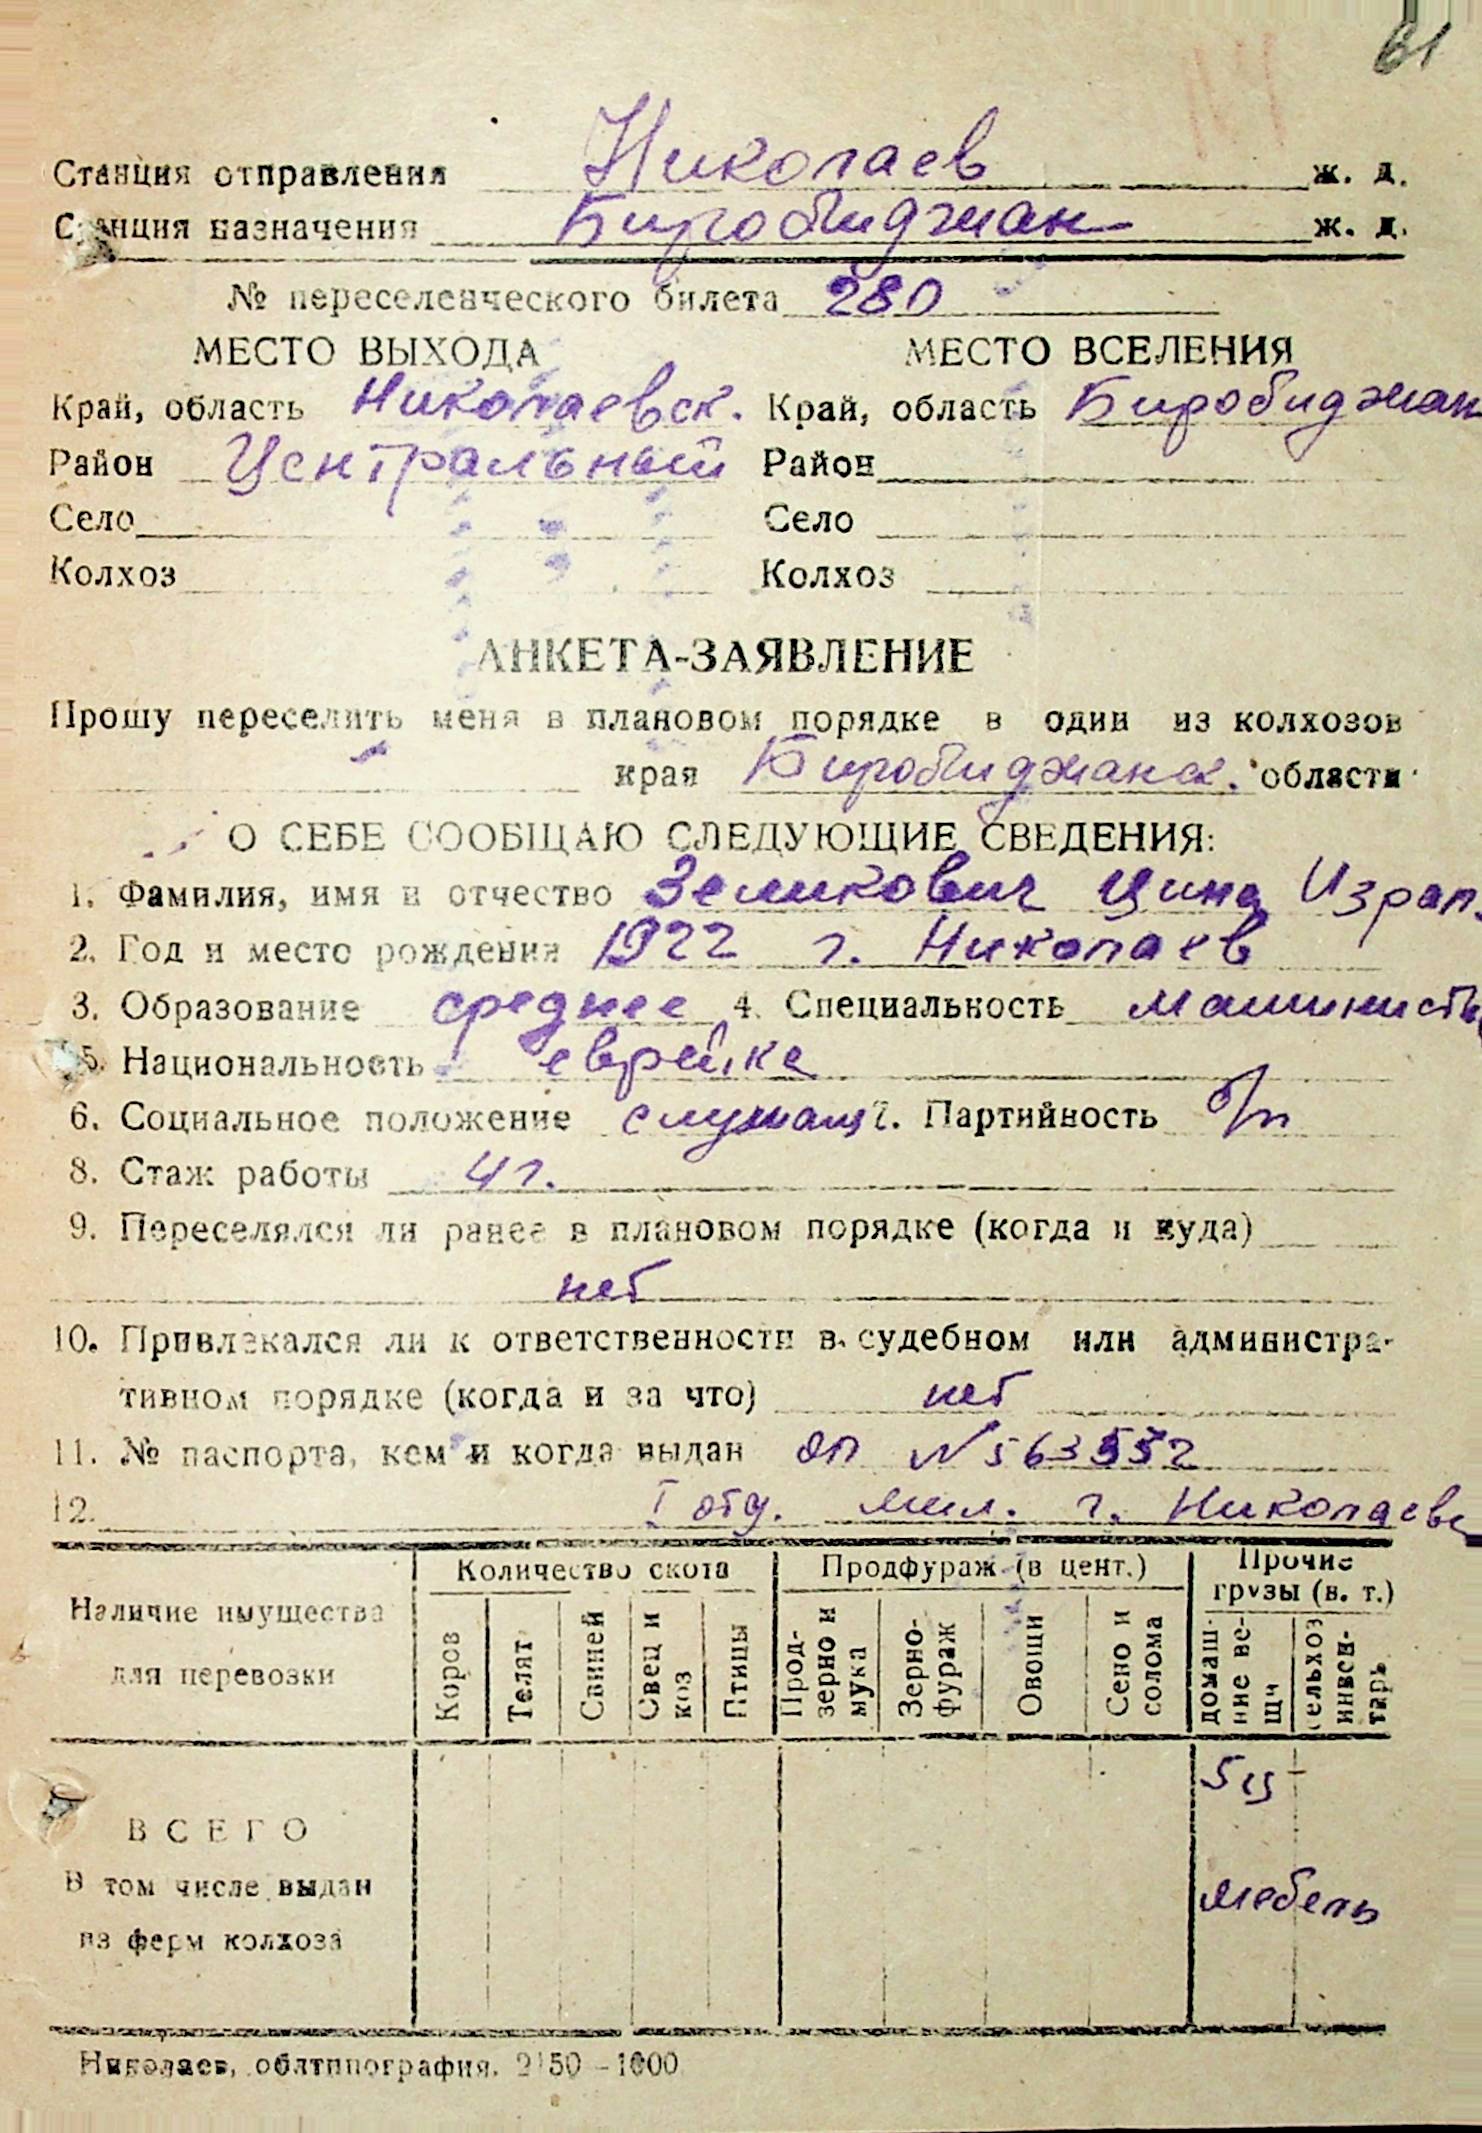 61
Станция отправления Николаев ж. д.
Станция назначения Биробиджан ж. д.
№ переселенческого билета 280
МЕСТО ВЫХОДА МЕСТО ВСЕЛЕНИЯ
Край, область Николаевск. Край, область Биробиджан
Район Центральный Район
Село Село
Колхоз Колхоз
АНКЕТА-ЗАЯВЛЕНИЕ
Прошу переселить меня в плановом порядке в один из колхозов
края Биробиджанск. области
О СЕБЕ СООБЩАЮ СЛЕДУЮЩИЕ СВЕДЕНИЯ:
1. Фамилия, имя и отчество Зеликович Цина Израил.
2. Год и место рождения 1922 г. Николаев
3. Образование среднее 4. Специальность машинистк
5. Национальность еврейка
6. Социальное положение служащ 7. Партийность б/п
8. Стаж работы 4 г.
9. Переселялся ли ранее в плановом порядке (когда и куда)
нет
10. Привлекался ли к ответственности в судебном или администра-
тивном порядке (когда и за что) нет
11. № паспорта, кем и когда выдан N 563552
12. I отд. мил. г. Николаева
Наличие имущества для перевозки
Количество скота
Продфураж (в цент.)
Прочие грузы (в. т.)
Коров
Телят
Свиней
Овец и коз
Птицы
Прод-зерно и мука
Зерно-фураж
Овощи
Сено и солома
домаш-ние ве-щи
сельхоз инвен-тарь
5 ц
ВСЕГО
В том числе выдан мебель
из ферм колхоза
Николаев, облтипография. 2150 – 1000